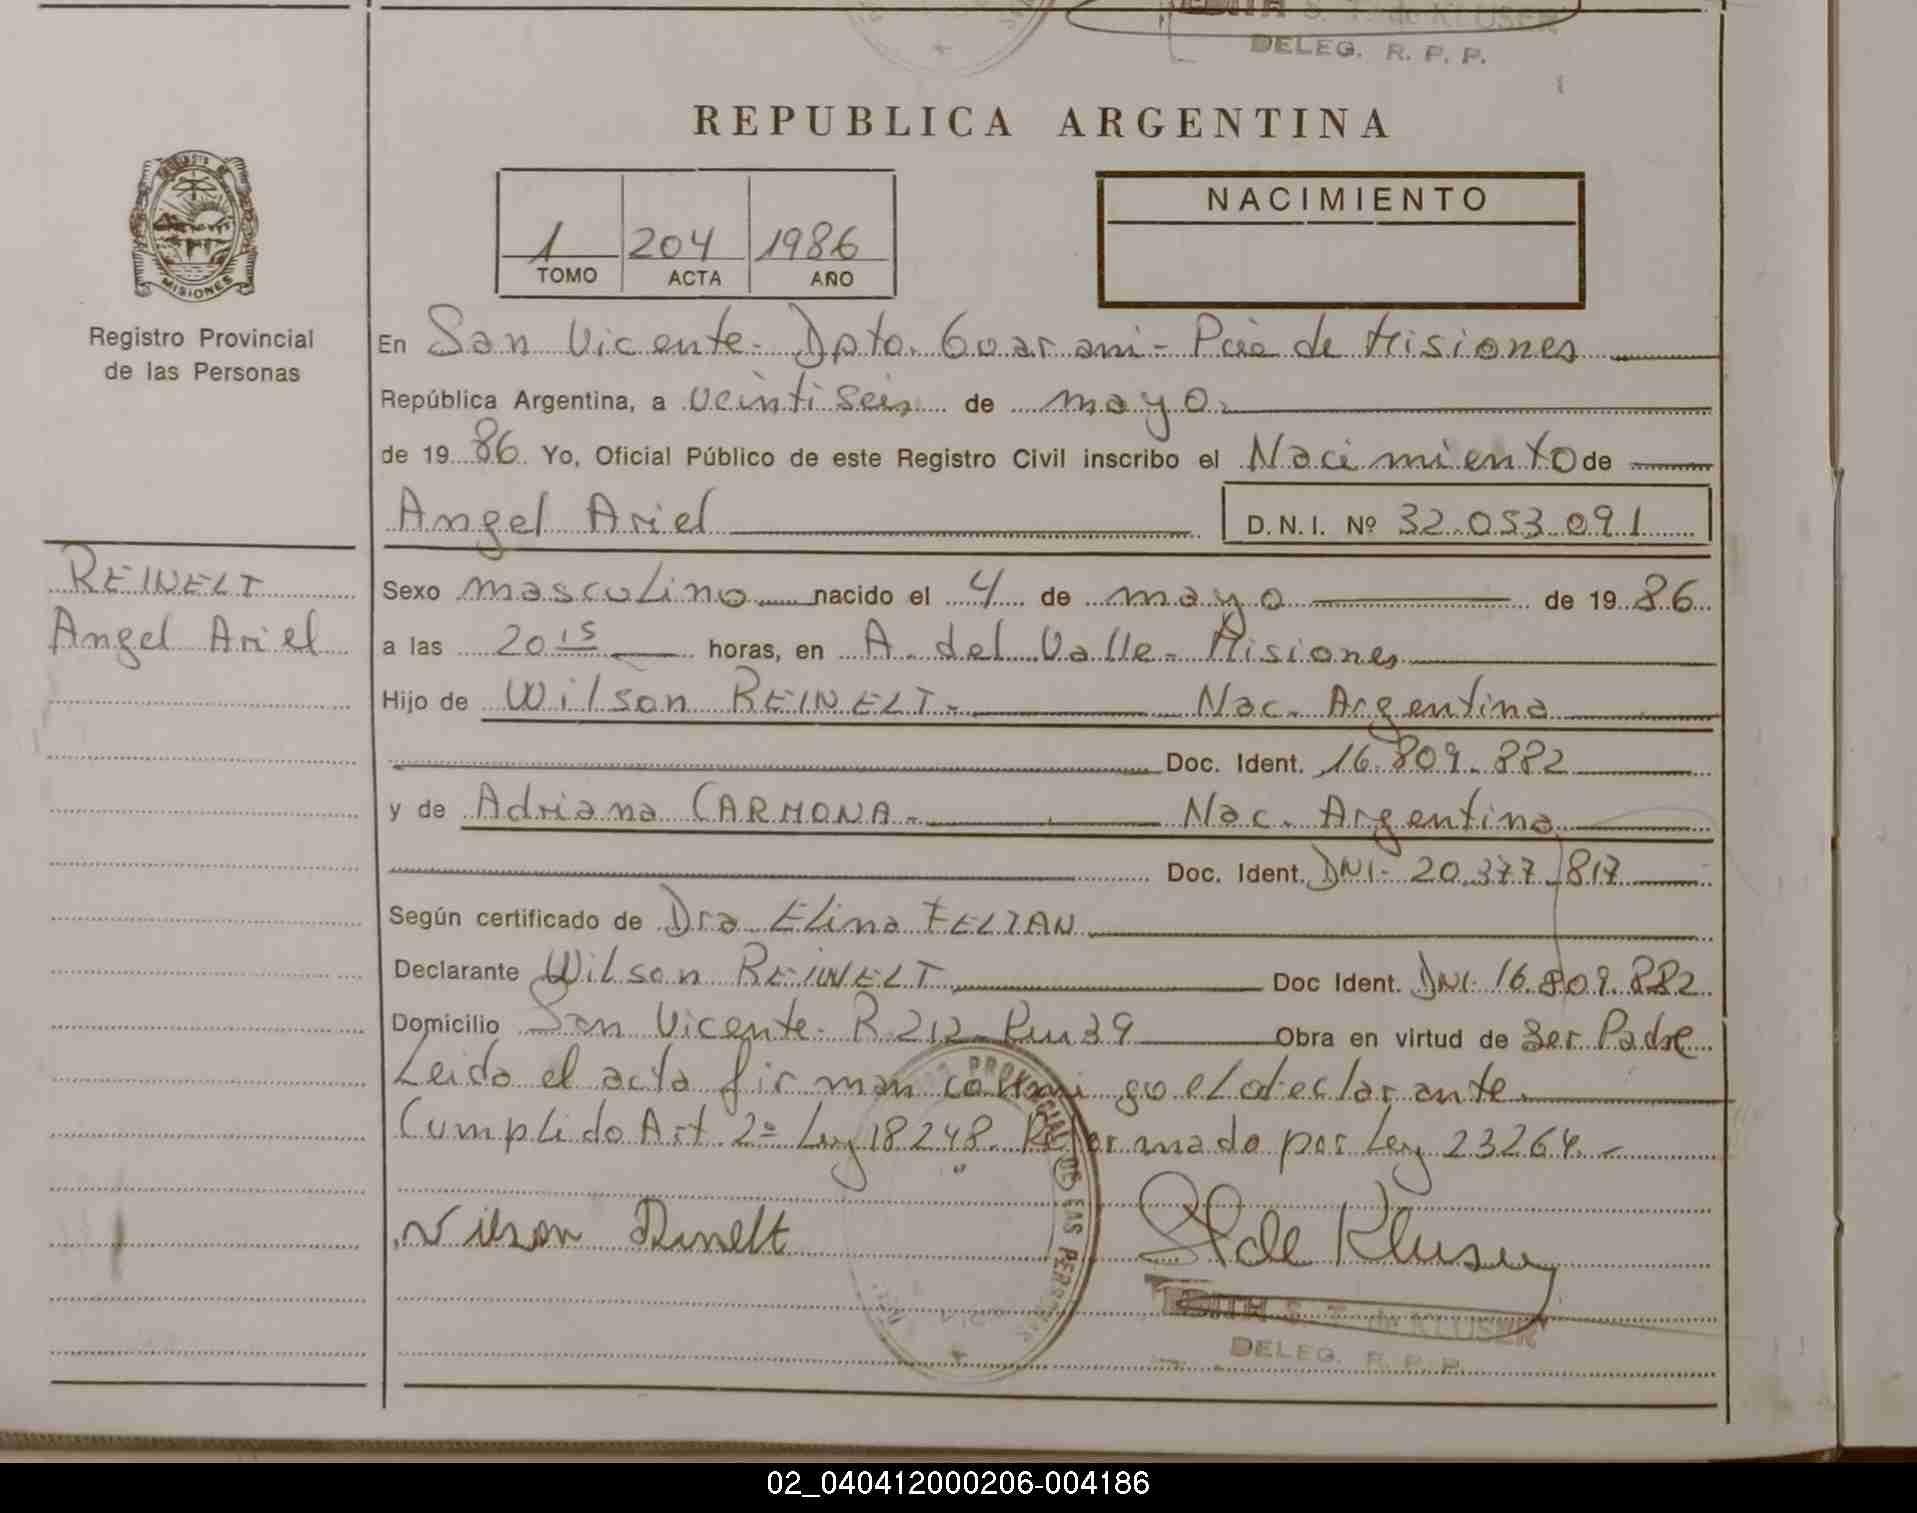 EDITH S. T. de KLUSER
DELEG. R. P. P.
REPUBLICA ARGENTINA
1 204 1986
TOMO ACTA AÑO
NACIMIENTO
MISIONES
Registro Provincial
de las Personas
En San Vicente - Dpto. Guarani - Pcia de Misiones
República Argentina, a veintiseis de mayo
de 1986 Yo, Oficial Público de este Registro Civil inscribo el Nacimiento de
Angel Ariel D.N.I. Nº 32.053.091
REINELT
Angel Ariel
Sexo masculino nacido el 4 de mayo de 1986
a las 20 15 horas, en A. del Valle - Misiones
Hijo de Wilson REINELT - Nac. Argentina
Doc. Ident. 16.809.882
y de Adriana CARMONA - Nac. Argentina
Doc. Ident. DNI- 20.377.817
Según certificado de Dra Elina
Declarante Wilson REINELT Doc Ident. DNI- 16.809.882
Domicilio San Vicente - R 212 - Km 39 Obra en virtud de ser Padre
Leida el acta firman conmigo el declarante
Cumplido Art. 2º Ley 18248. Reformado por Ley 23264.-
Wilson Reinelt
ST de Kluser
PROVINCIAL DE LAS PERSONAS
EDITH S. T. de KLUSER
DELEG. R. P. P.
02_040412000206-004186